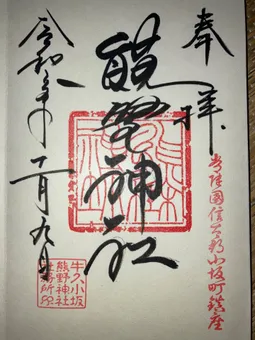 奉拝
常陸國信太郡小坂町鎮座
熊野神社
令和年月九日
牛久小坂
熊野神社
社務所印